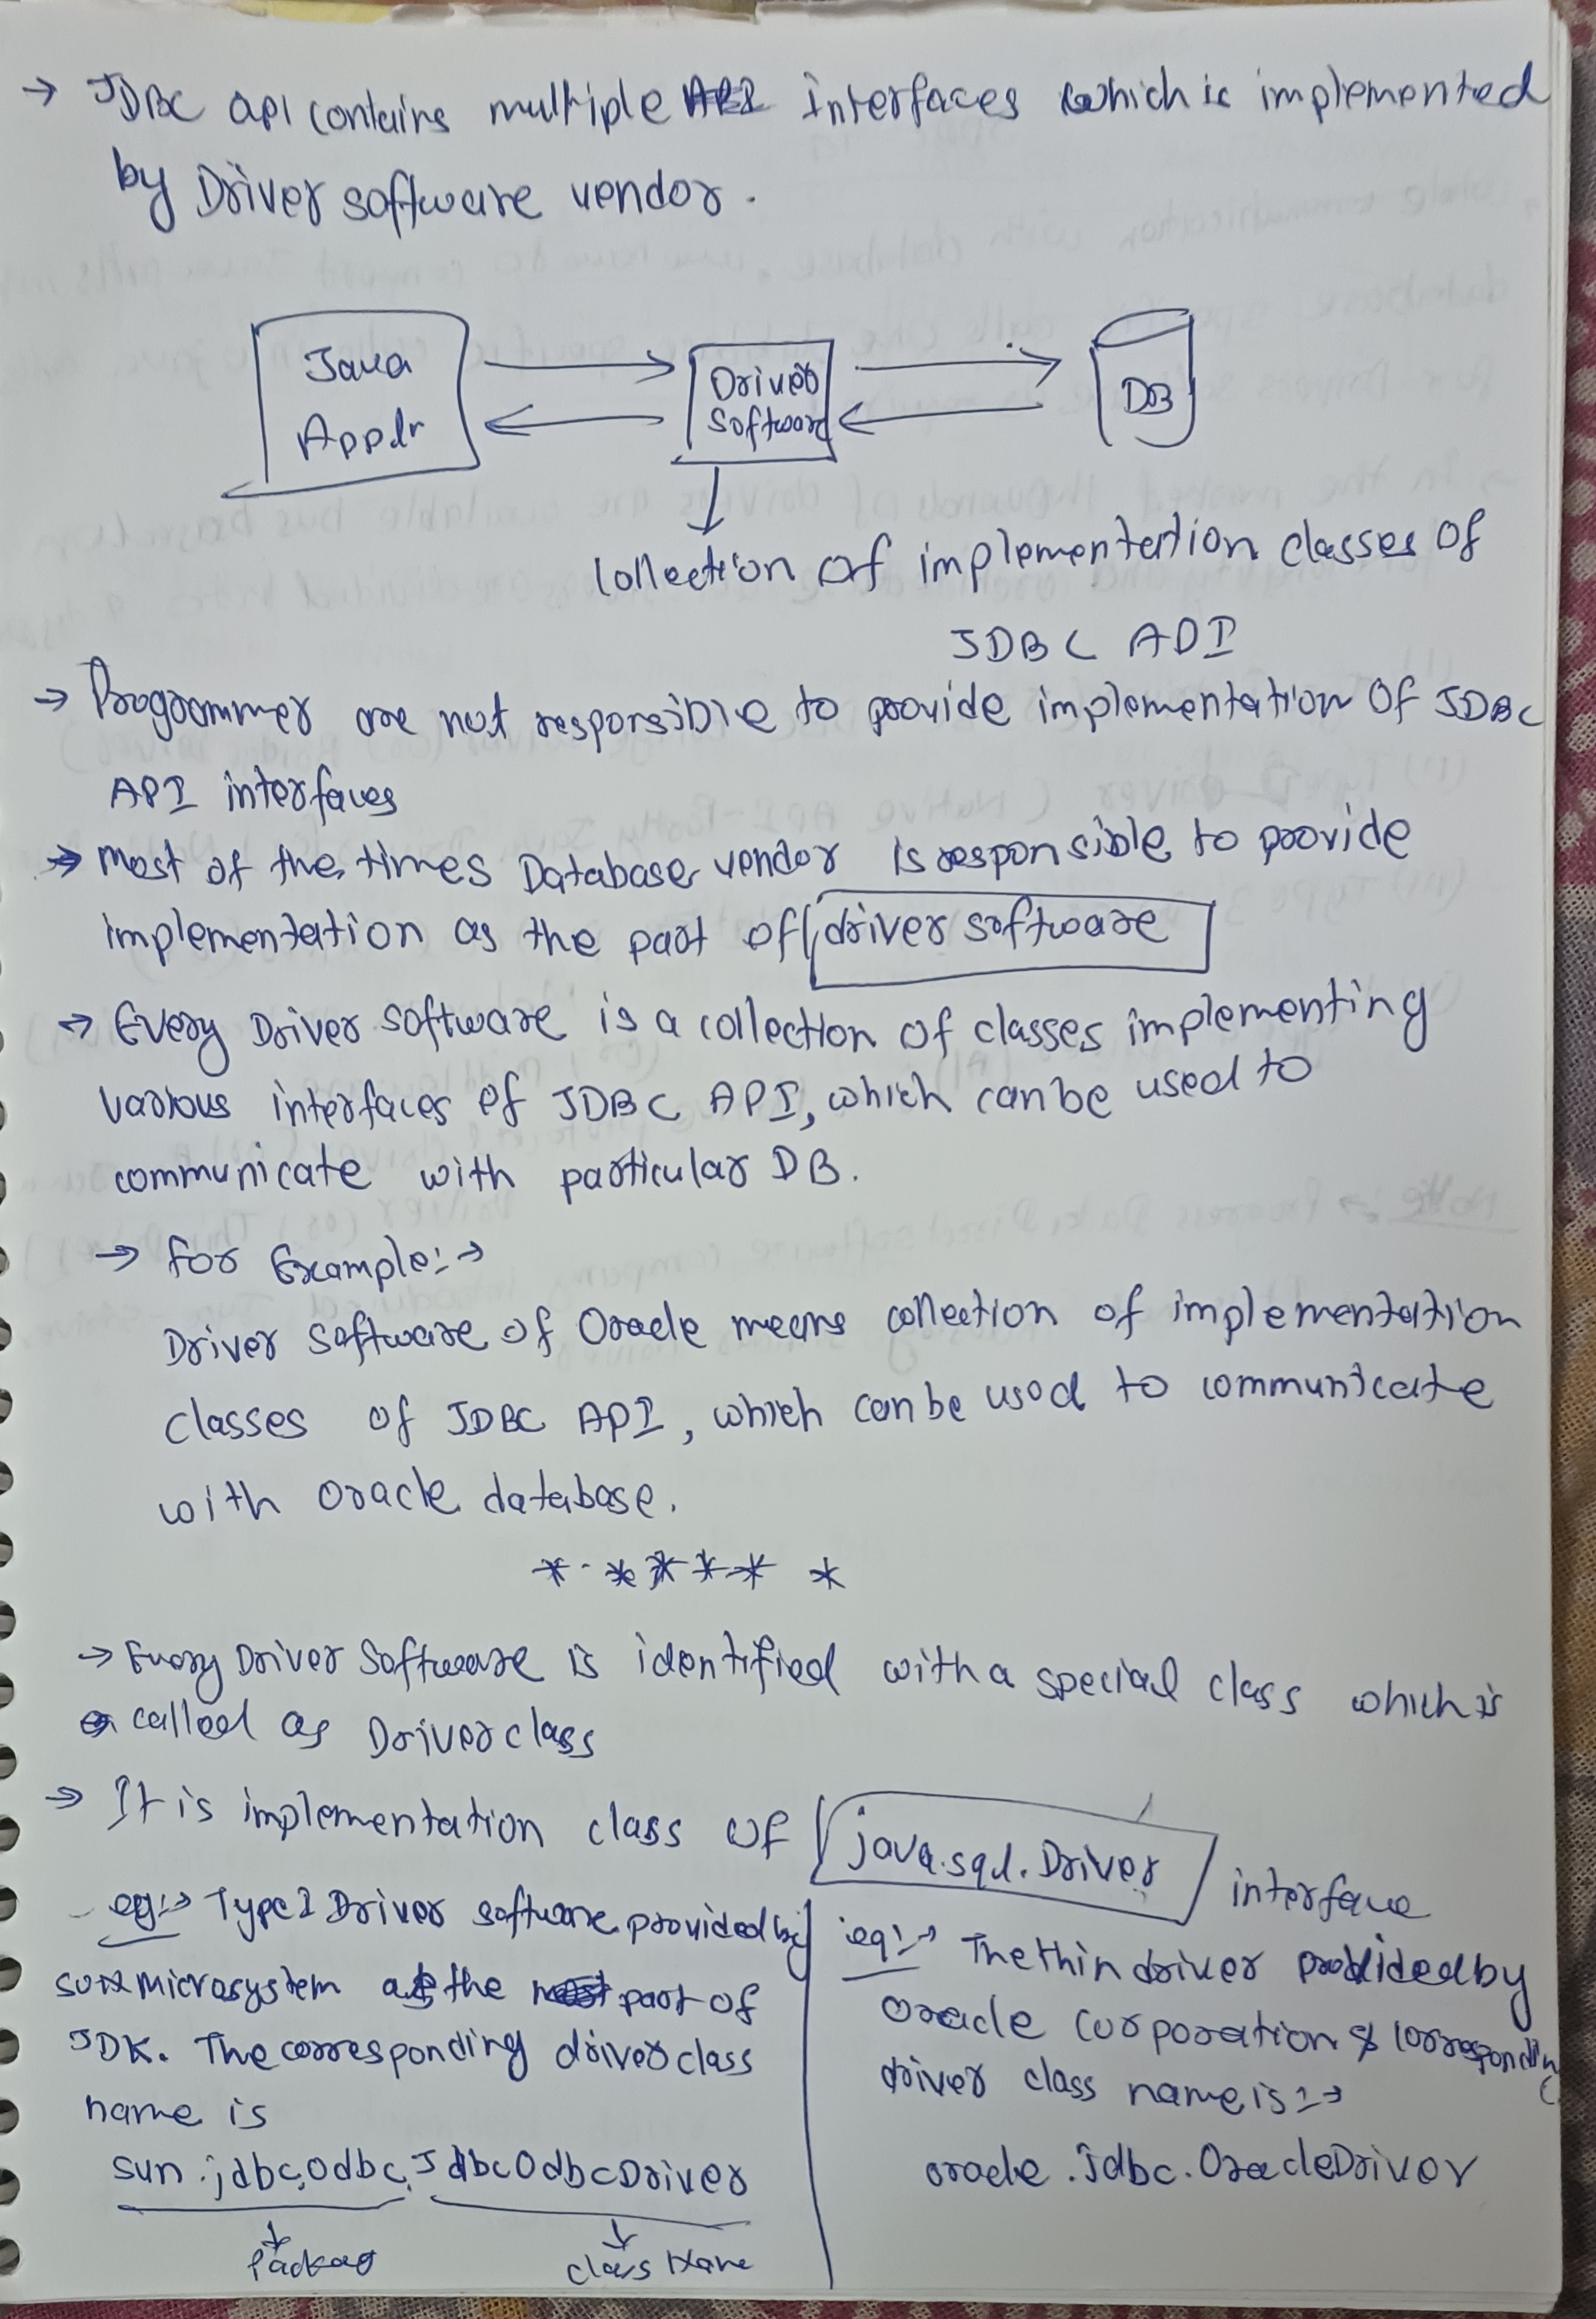 → JDBC api contains multiple interfaces which is implemented
by Driver software vendor.
Java
Appln
Driver
Software
DB
collection of implementation classes of
JDBC API
→ Programmer are not responsible to provide implementation of JDBC
API interfaces
→ Most of the times Database vendor is responsible to provide
implementation as the part of driver software
→ Every Driver software is a collection of classes implementing
various interfaces of JDBC API, which can be used to
communicate with particular DB.
→ for Example:→
Driver software of Oracle means collection of implementation
classes of JDBC API, which can be used to communicate
with oracle database.
* * * * * *
→ Every Driver Software is identified with a special class which is
called as Driver class
→ It is implementation class of java.sql.Driver interface
eg:→ Type 1 Driver software provided by
sun microsystem as the part of
JDK. The corresponding driver class
name is
sun.jdbc.odbc.JdbcOdbcDriver
Package
class Name
eg:→ The thin driver provided by
oracle corporation & corresponding
driver class name is:→
oracle.jdbc.OracleDriver